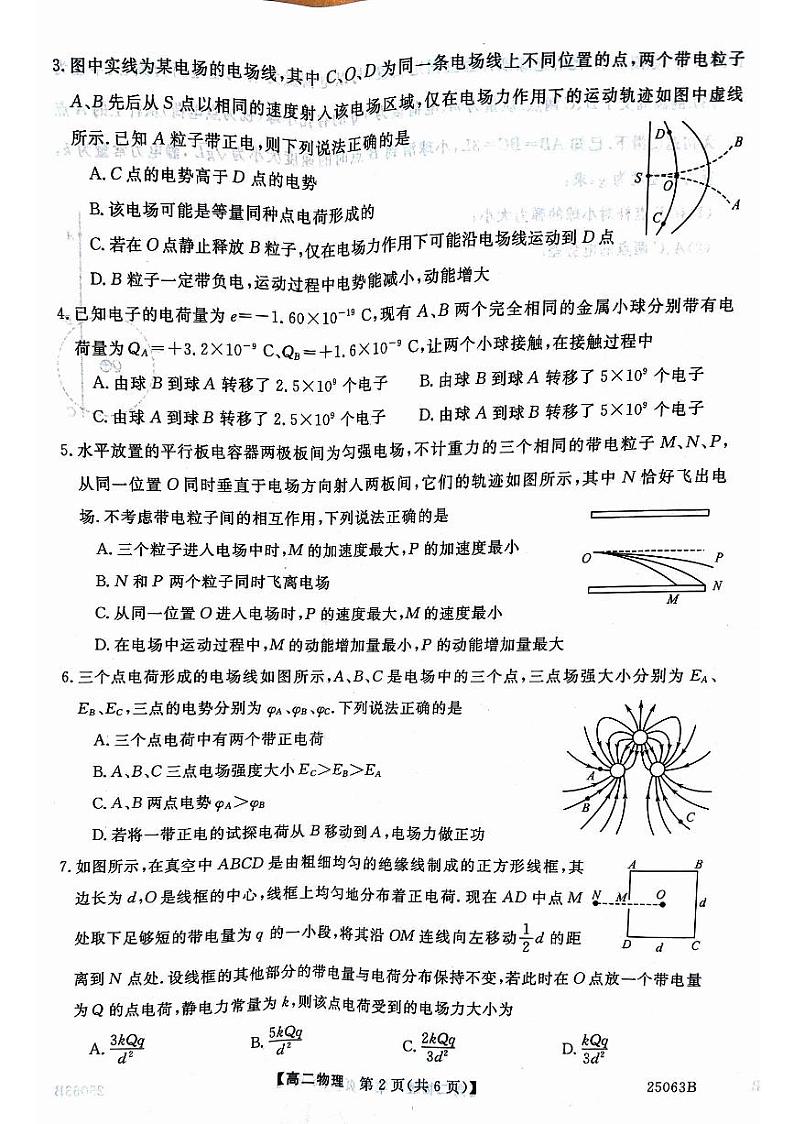 3. 图中实线为某电场的电场线,其中 C、O、D 为同一条电场线上不同位置的点,两个带电粒子
A、B 先后从 S 点以相同的速度射入该电场区域,仅在电场力作用下的运动轨迹如图中虚线
所示. 已知 A 粒子带正电,则下列说法正确的是
A. C 点的电势高于 D 点的电势
B. 该电场可能是等量同种点电荷形成的
C. 若在 O 点静止释放 B 粒子,仅在电场力作用下可能沿电场线运动到 D 点
D. B 粒子一定带负电,运动过程中电势能减小,动能增大
D
B
S
O
A
C
4. 已知电子的电荷量为 e=-1.60×10⁻¹⁹ C,现有 A、B 两个完全相同的金属小球分别带有电
荷量为 Q_A=+3.2×10⁻⁹ C、Q_B=+1.6×10⁻⁹ C,让两个小球接触,在接触过程中
A. 由球 B 到球 A 转移了 2.5×10⁹ 个电子 B. 由球 B 到球 A 转移了 5×10⁹ 个电子
C. 由球 A 到球 B 转移了 2.5×10⁹ 个电子 D. 由球 A 到球 B 转移了 5×10⁹ 个电子
5. 水平放置的平行板电容器两极板间为匀强电场,不计重力的三个相同的带电粒子 M、N、P,
从同一位置 O 同时垂直于电场方向射入两板间,它们的轨迹如图所示,其中 N 恰好飞出电
场. 不考虑带电粒子间的相互作用,下列说法正确的是
A. 三个粒子进入电场中时,M 的加速度最大,P 的加速度最小
B. N 和 P 两个粒子同时飞离电场
C. 从同一位置 O 进入电场时,P 的速度最大,M 的速度最小
D. 在电场中运动过程中,M 的动能增加量最小,P 的动能增加量最大
O
P
N
M
6. 三个点电荷形成的电场线如图所示,A、B、C 是电场中的三个点,三点场强大小分别为 E_A、
E_B、E_C,三点的电势分别为 φ_A、φ_B、φ_C. 下列说法正确的是
A. 三个点电荷中有两个带正电荷
B. A、B、C 三点电场强度大小 E_C>E_B>E_A
C. A、B 两点电势 φ_A>φ_B
D. 若将一带正电的试探电荷从 B 移动到 A,电场力做正功
A
B
C
7. 如图所示,在真空中 ABCD 是由粗细均匀的绝缘线制成的正方形线框,其
边长为 d,O 是线框的中心,线框上均匀地分布着正电荷. 现在 AD 中点 M
处取下足够短的带电量为 q 的一小段,将其沿 OM 连线向左移动 1/2 d 的距
离到 N 点处. 设线框的其他部分的带电量与电荷分布保持不变,若此时在 O 点放一个带电量
为 Q 的点电荷,静电力常量为 k,则该点电荷受到的电场力大小为
A B
N M O d
D d C
A. 3kQq/d² B. 5kQq/d² C. 2kQq/3d² D. kQq/3d²
【高二物理 第 2 页(共 6 页)】 25063B